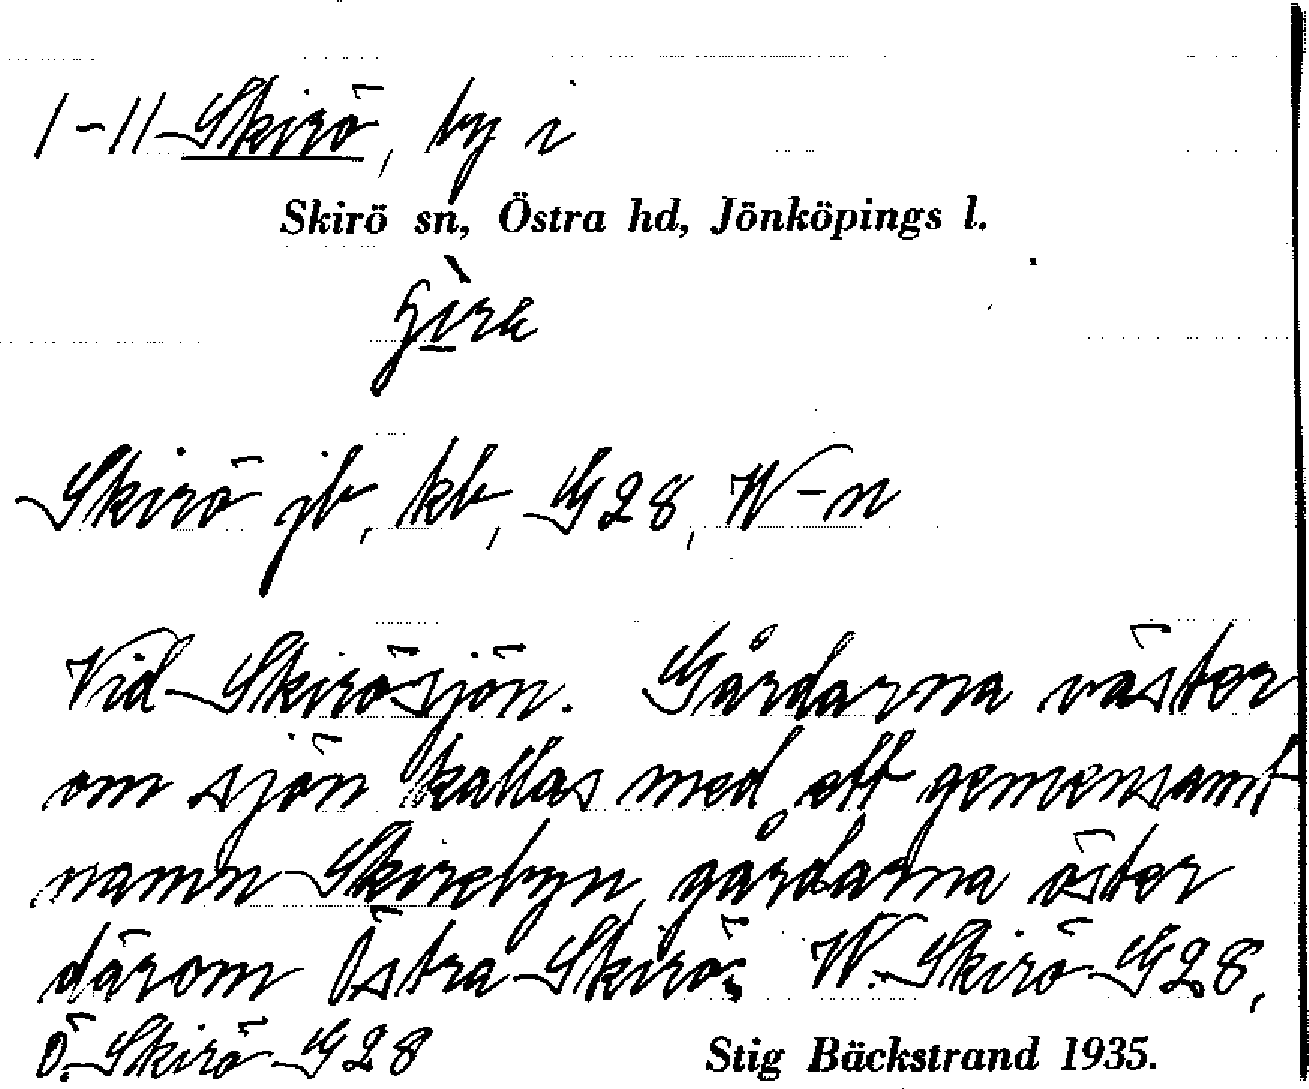 1-11 Skirö, by i
Skirö sn, Östra hd, Jönköpings l.
Skirö jb, kb, G28, W-n
Vid Skirösjön. Gårdarna väster
om sjön kallas med ett gemensamt
namn Skirebyn, gårdarna öster
därom Östra Skirö; W. Skirö G28,
Ö. Skirö G28
Stig Bäckstrand 1935.